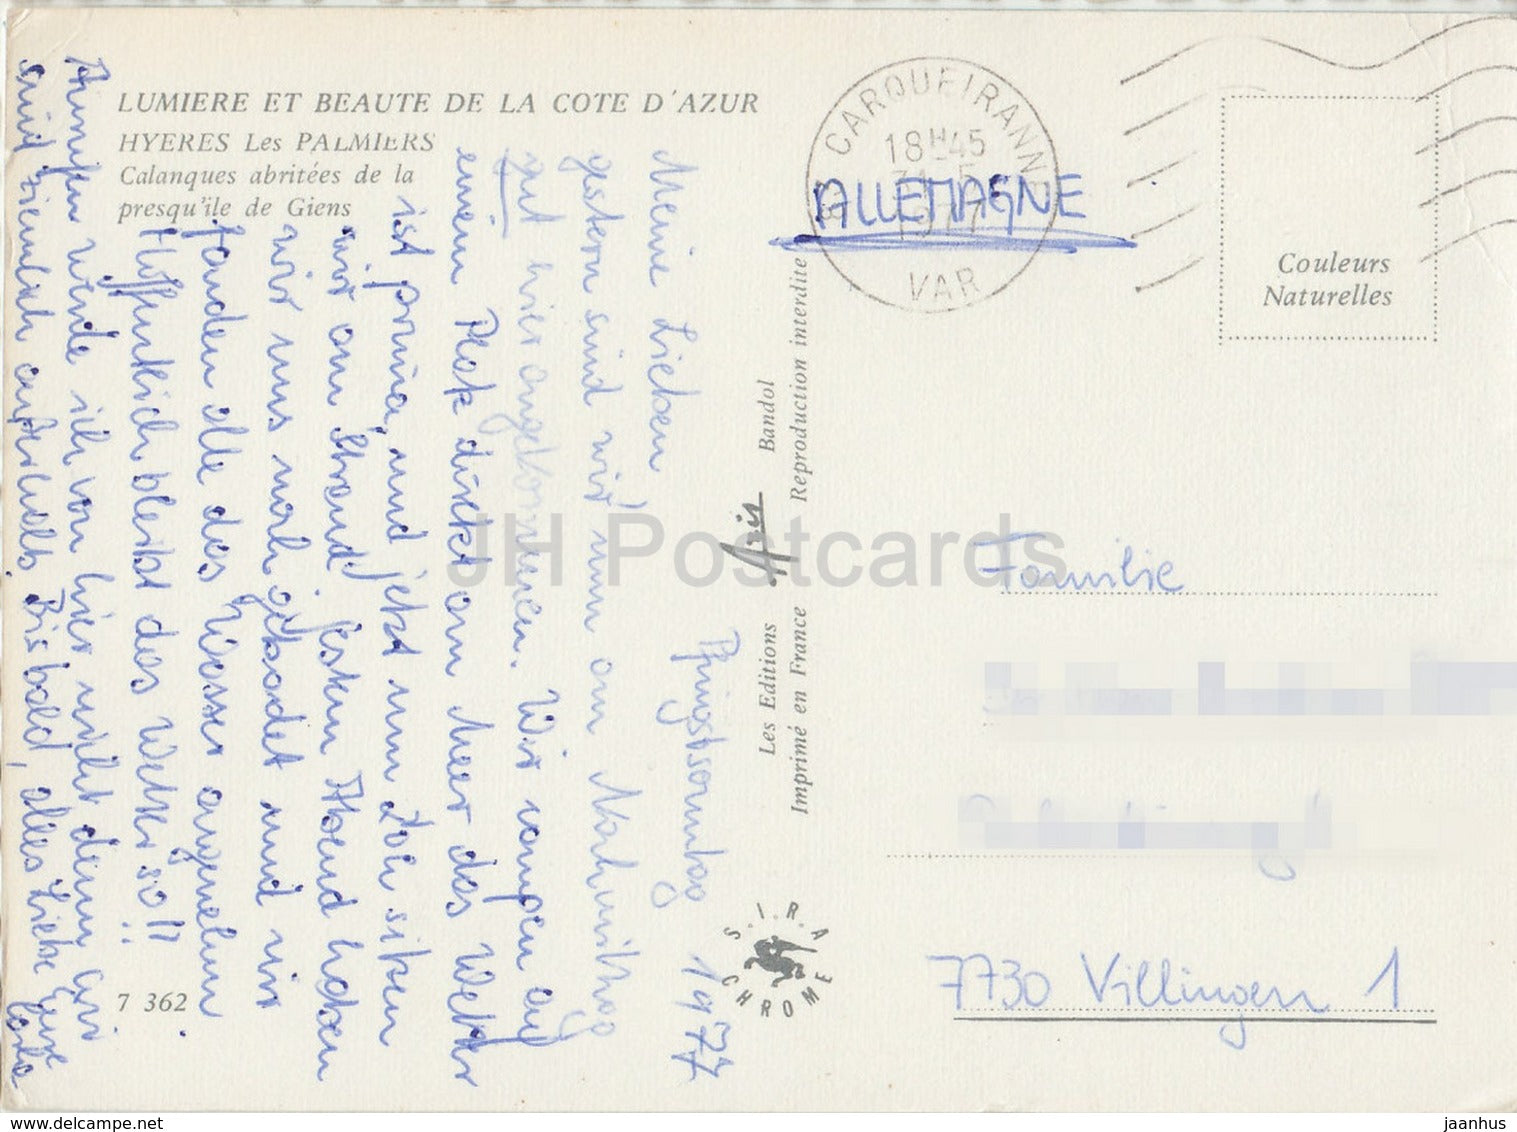 LUMIERE ET BEAUTE DE LA COTE D'AZUR
HYERES Les PALMIERS
Calanques abritées de la
presqu'île de Giens
Pfingstsonntag 1977
Meine Lieben!
gestern sind wir nun am Nachmittag
gut hier angekommen. Wir campen auf
einem Platz direkt am Meer das Wetter
ist prima, und jetzt um zehn sitzen
wir am Strand. Gestern Abend haben
wir uns noch gebadet und wir
fanden alle das Wasser angenehm
Hoffentlich bleibt das Wetter so!!
Anrufen würde ich von hier nicht denn wir
sind ziemlich außerhalb. Bis bald, alles Liebe Eure
7 362
Les Editions Aris Bandol
Imprimé en France Reproduction interdite
S.I.R.A
CHROME
CARQUEIRANNE
18H45
31-5
1977
VAR
ALLEMAGNE
Couleurs
Naturelles
Familie
7730 Villingen 1
JH Postcards
www.delcampe.net
jaanhus